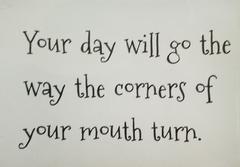 Your day will go the
way the corners of
your mouth turn.